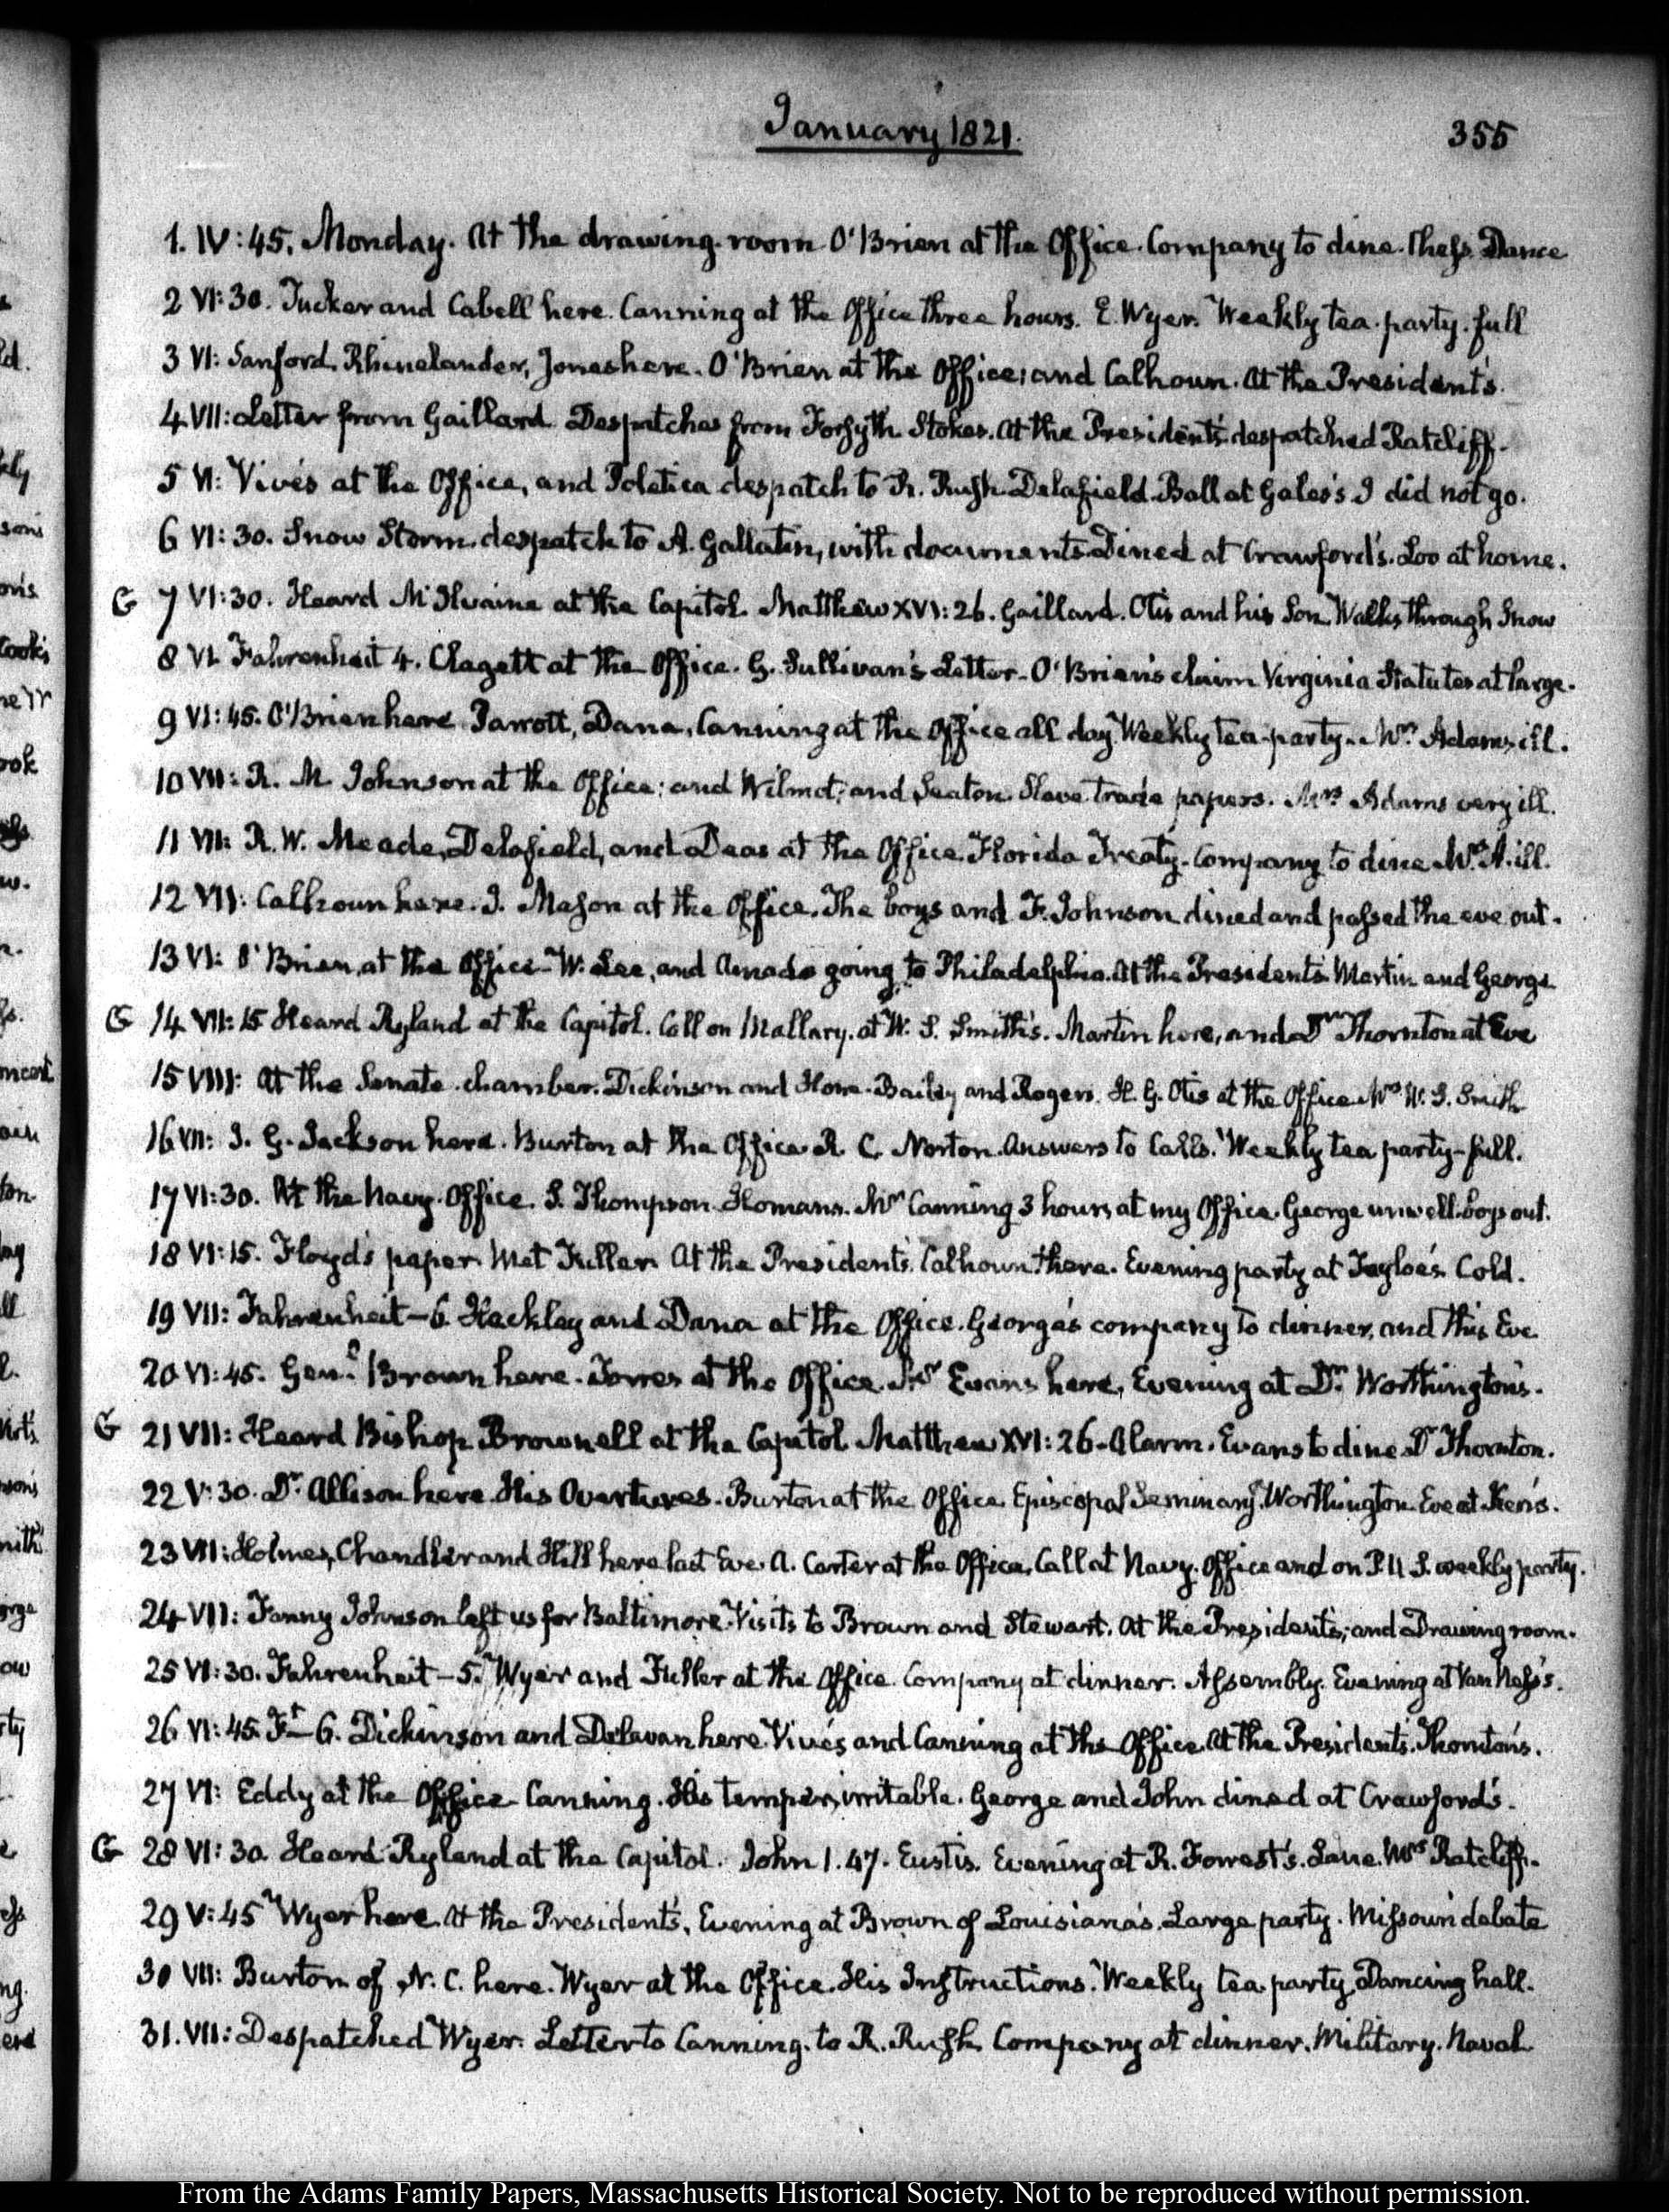 January 1821.
355
1. IV:45. Monday. At the drawing-room. O'Brien at the Office. Company to dine. Chess. Dance
2 VI:30. Tucker and Cabell here. Canning at the Office three hours. E. Wyer. Weekly tea-party. full
3 VI: Sanford. Rhinelander, Jones here. O'Brien at the Office; and Calhoun. At the President's.
4 VII: Letter from Gaillard. Despatches from Forsyth. Stokes. At the President's. despatched Ratcliff.
5 VI: Vivés at the Office, and Poletica despatch to R. Rush. Delafield. Ball at Gales's I did not go.
6 VI:30. Snow Storm. despatch to A. Gallatin, with documents. Dined at Crawford's. Loo at home.
G 7 VI:30. Heard McIlvaine at the Capitol. Matthew XVI:26. Gaillard. Otis and his Son. Walks through Snow
8 VI. Fahrenheit 4. Clagett at the Office. G. Sullivan's Letter. O'Brien's claim Virginia Statutes at large.
9 VI:45. O'Brien here Parrott, Dana, Canning at the Office all day. Weekly tea-party. Mrs. Adams, ill.
10 VII: R. M Johnson at the Office; and Wilmot; and Seaton. Slave trade papers. Mrs Adams very ill.
11 VII: R. W. Meade, Delafield, and Deas at the Office. Florida Treaty. Company to dine. Mrs. A. ill.
12 VII: Calhoun here. J. Mason at the Office. The boys and F. Johnson dined and passed the eve out.
13 VI: O'Brien, at the Office. W. Lee, and Amado going to Philadelphia. At the President's. Martin and George
G 14 VII:15 Heard Ryland at the Capitol. Call on Mallary. at W. S. Smith's. Martin here, and Dr Thornton at Eve
15 VIII: At the Senate-chamber. Dickinson and Howe. Bailey and Rogers. H. G. Otis at the Office. Mrs W. S. Smith
16 VII: J. G. Jackson here. Burton at the Office. R. C. Norton. Answers to Calls. Weekly tea party-full.
17 VI:30. At the Navy-Office. S. Thompson. Homans. Mr Canning 3 hours, at my Office. George unwell. boys out.
18 VI:15. Floyd's paper. Met Fuller. At the President's. Calhoun there. Evening party at Tayloe's. Cold.
19 VII: Fahrenheit -6. Heckley and Dana at the Office. George's company to dinner, and this Eve.
20 VI:45. Genl. Brown here. Torres at the Office. Evans here, Evening at Dr. Worthington's.
G 21 VII: Heard Bishop Brownell at the Capitol Matthew XVI:26. Alarm. Evans to dine. Dr Thornton.
22 V:30. Dr. Allison here. His Overtures. Burton at the Office. Episcopal Seminary. Worthington. Eve at Ker's.
23 VII: Holmes, Chandler and Hill here last Eve. A. Carter at the Office. Call at Navy-Office and on P.U.S. weekly party.
24 VII: Fanny Johnson left us for Baltimore. Visits to Brown and Stewart. At the President's; and Drawing room.
25 VI:30. Fahrenheit -5. Wyer and Fuller at the Office. Company at dinner. Assembly. Evening at Van Ness's.
26 VI:45. Ft -6. Dickinson and Delavan here. Vivés and Canning at the Office. At the President's. Thornton's.
27 VI: Eddy at the Office. Canning. His temper, irritable. George and John dined at Crawford's.
G 28 VI:30. Heard Ryland at the Capitol. John 1.47. Eustis. Evening at R. Forrest's. Lane. Mrs Ratcliff.
29 V:45 Wyer here. At the President's. Evening at Brown of Louisiana's. Large party. Missouri debate
30 VII: Burton of N. C. here. Wyer at the Office. His Instructions. Weekly tea party. Dancing hall.
31. VII: Despatched Wyer. Letter to Canning. to R. Rush. Company at dinner. Military. Naval
From the Adams Family Papers, Massachusetts Historical Society. Not to be reproduced without permission.